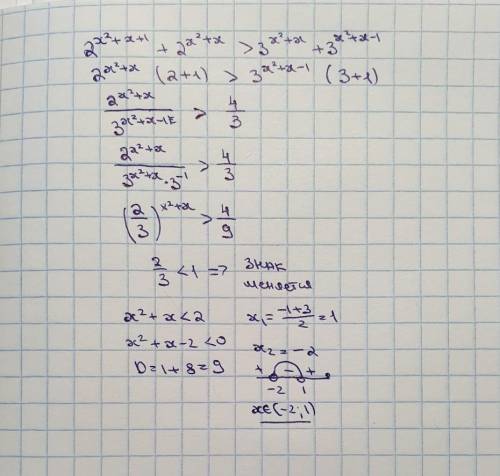 2^{x²+x+1} + 2^{x²+x} > 3^{x²+x} + 3^{x²+x-1}
2^{x²+x} (2+1) > 3^{x²+x-1} (3+1)
2^{x²+x} / 3^{x²+x-1} > 4/3
2^{x²+x} / (3^{x²+x} · 3^{-1}) > 4/3
(2/3)^{x²+x} > 4/9
2/3 < 1 => знак
меняется
x² + x < 2
x² + x - 2 < 0
D = 1 + 8 = 9
x₁ = (-1+3)/2 = 1
x₂ = -2
+ - +
-2 1
x∈(-2;1)